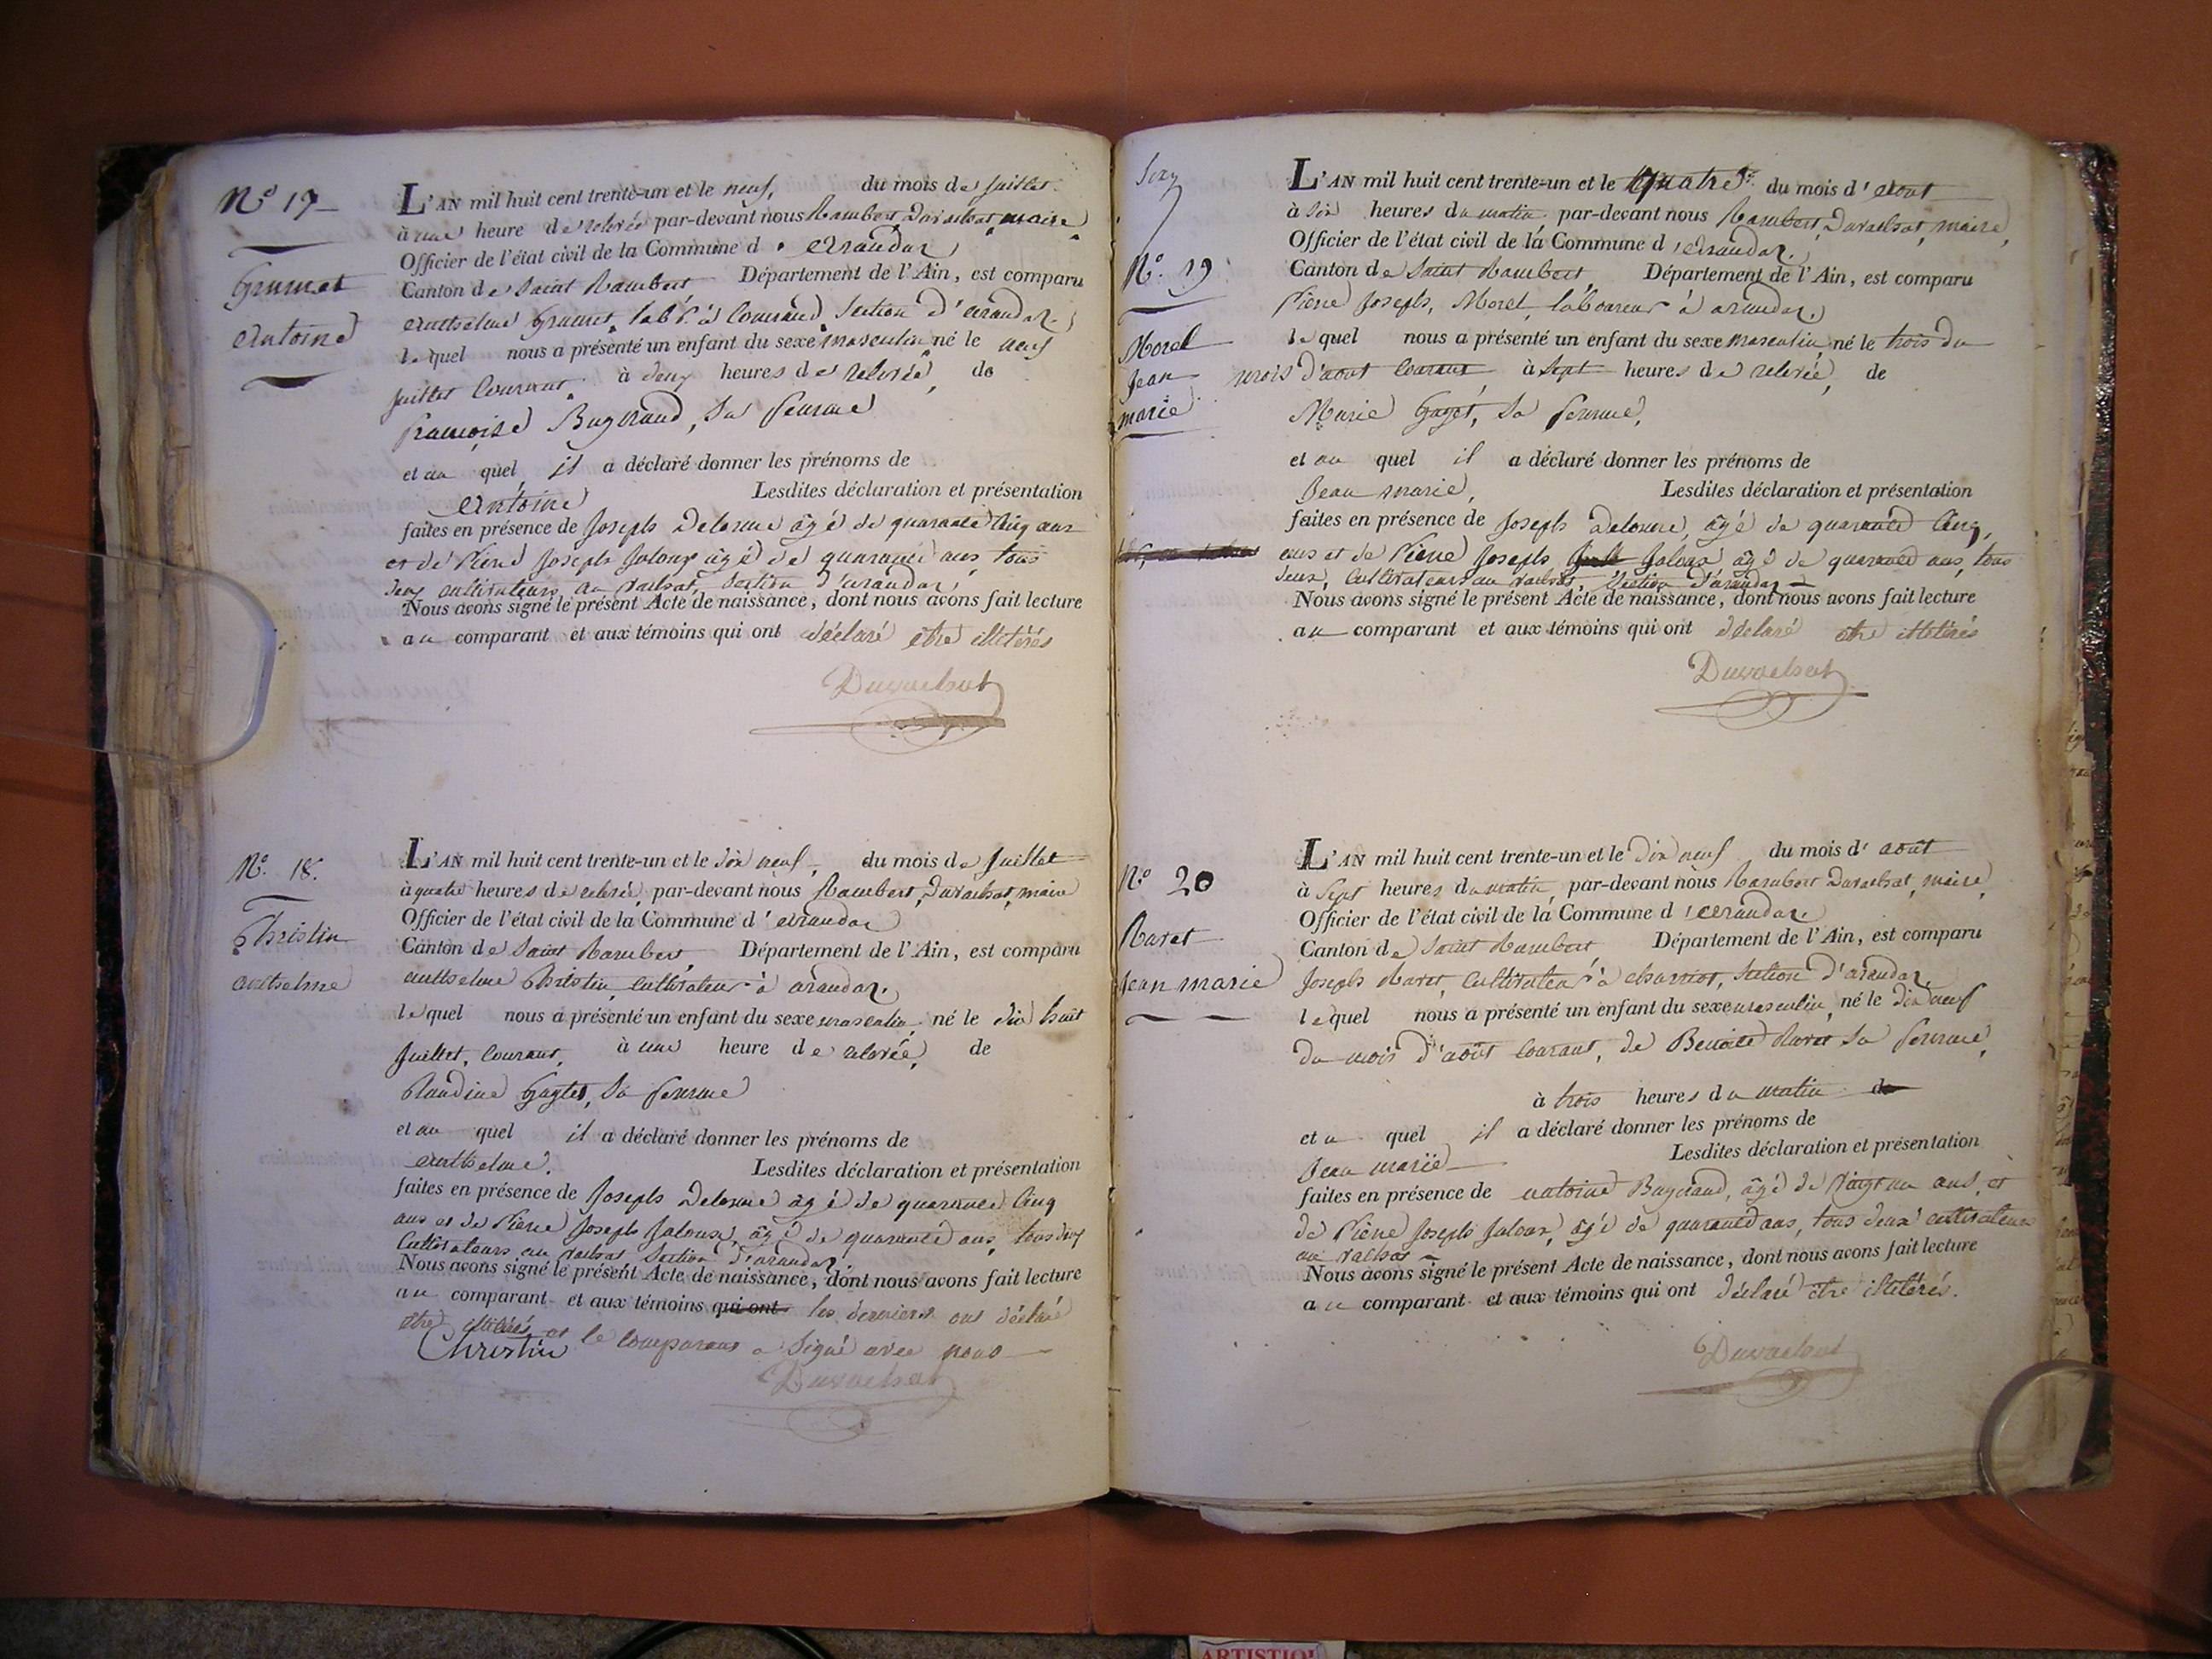 N.o 17
Grumet
Antoine
L'AN mil huit cent trente-un et le neuf, du mois de Juillet
à une heure de relevée par-devant nous Rambert Duvachat, maire
Officier de l'état civil de la Commune d'arandas,
Canton de Saint Rambert Département de l'Ain, est comparu
anthelme Grumet, lab.r à Section d'arandas,
lequel nous a présenté un enfant du sexe masculin né le neuf
juillet Courant à deux heures de relevée, de
françoise Bugniaud, Sa femme
et au quel il a déclaré donner les prénoms de
Antoine Lesdites déclaration et présentation
faites en présence de Joseph Delorme âgé de quarante Cinq ans
et de Pierre Joseph Jaloux âgé de quarante ans, tous
deux cultivateurs au vachat, Section d'arandas,
Nous avons signé le présent Acte de naissance, dont nous avons fait lecture
au comparant et aux témoins qui ont déclaré être illitérés
Duvachat
N.o 18.
Christin
anthelme
L'AN mil huit cent trente-un et le dix neuf, du mois de Juillet
à quatre heures de relevée, par-devant nous Rambert, Duvachat, maire
Officier de l'état civil de la Commune d'arandas
Canton de Saint Rambert Département de l'Ain, est comparu
anthelme Christin, Cultivateur à arandas.
lequel nous a présenté un enfant du sexe masculin né le dix huit
Juillet, Courant, à une heure de relevée, de
Claudine Gaget, Sa femme
et au quel il a déclaré donner les prénoms de
anthelme. Lesdites déclaration et présentation
faites en présence de Joseph Delorme âgé de quarante Cinq
ans et de Pierre Joseph Jaloux, âgé de quarante ans, tous deux
Cultivateurs au vachat Section d'arandas.
Nous avons signé le présent Acte de naissance, dont nous avons fait lecture
au comparant et aux témoins qui ont les derniers ont déclaré
être illitérés et le Comparant a Signé avec nous
Christin
Duvachat
N.o 19
Morel
Jean
marie
L'AN mil huit cent trente-un et le Quatre du mois d'aout
à Six heures du matin par-devant nous Rambert, Duvachat, maire,
Officier de l'état civil de la Commune d'arandas.
Canton de Saint Rambert Département de l'Ain, est comparu
Pierre Joseph, Morel, laboureur à arandas.
lequel nous a présenté un enfant du sexe masculin né le trois du
mois d'aout Courant, à Sept heures de relevée, de
Marie Gaget, Sa femme,
et au quel il a déclaré donner les prénoms de
Jean marie, Lesdites déclaration et présentation
faites en présence de Joseph Delorme, âgé de quarante Cinq,
ans et de Pierre Joseph Jaloux âgé de quarante ans, tous
deux, Cultivateurs au vachat, Section d'arandas
Nous avons signé le présent Acte de naissance, dont nous avons fait lecture
au comparant et aux témoins qui ont déclaré être illitérés
Duvachat
N.o 20
Ravet
Jean marie
L'AN mil huit cent trente-un et le dix neuf du mois d'août
à Sept heures du matin par-devant nous Rambert Duvachat, maire,
Officier de l'état civil de la Commune d'arandas.
Canton de Saint Rambert Département de l'Ain, est comparu
Joseph Ravet, Cultivateur à Section d'arandas,
lequel nous a présenté un enfant du sexe masculin, né le dix neuf
du mois d'août Courant, de Benoite Ravet Sa femme,
à trois heures du matin de
et au quel il a déclaré donner les prénoms de
Jean marie Lesdites déclaration et présentation
faites en présence de antoine Bugniaud, âgé de Vingt un ans, et
de Pierre Joseph Jaloux, âgé de quarante ans, tous deux cultivateurs
au vachat
Nous avons signé le présent Acte de naissance, dont nous avons fait lecture
au comparant et aux témoins qui ont déclaré être illitérés.
Duvachat